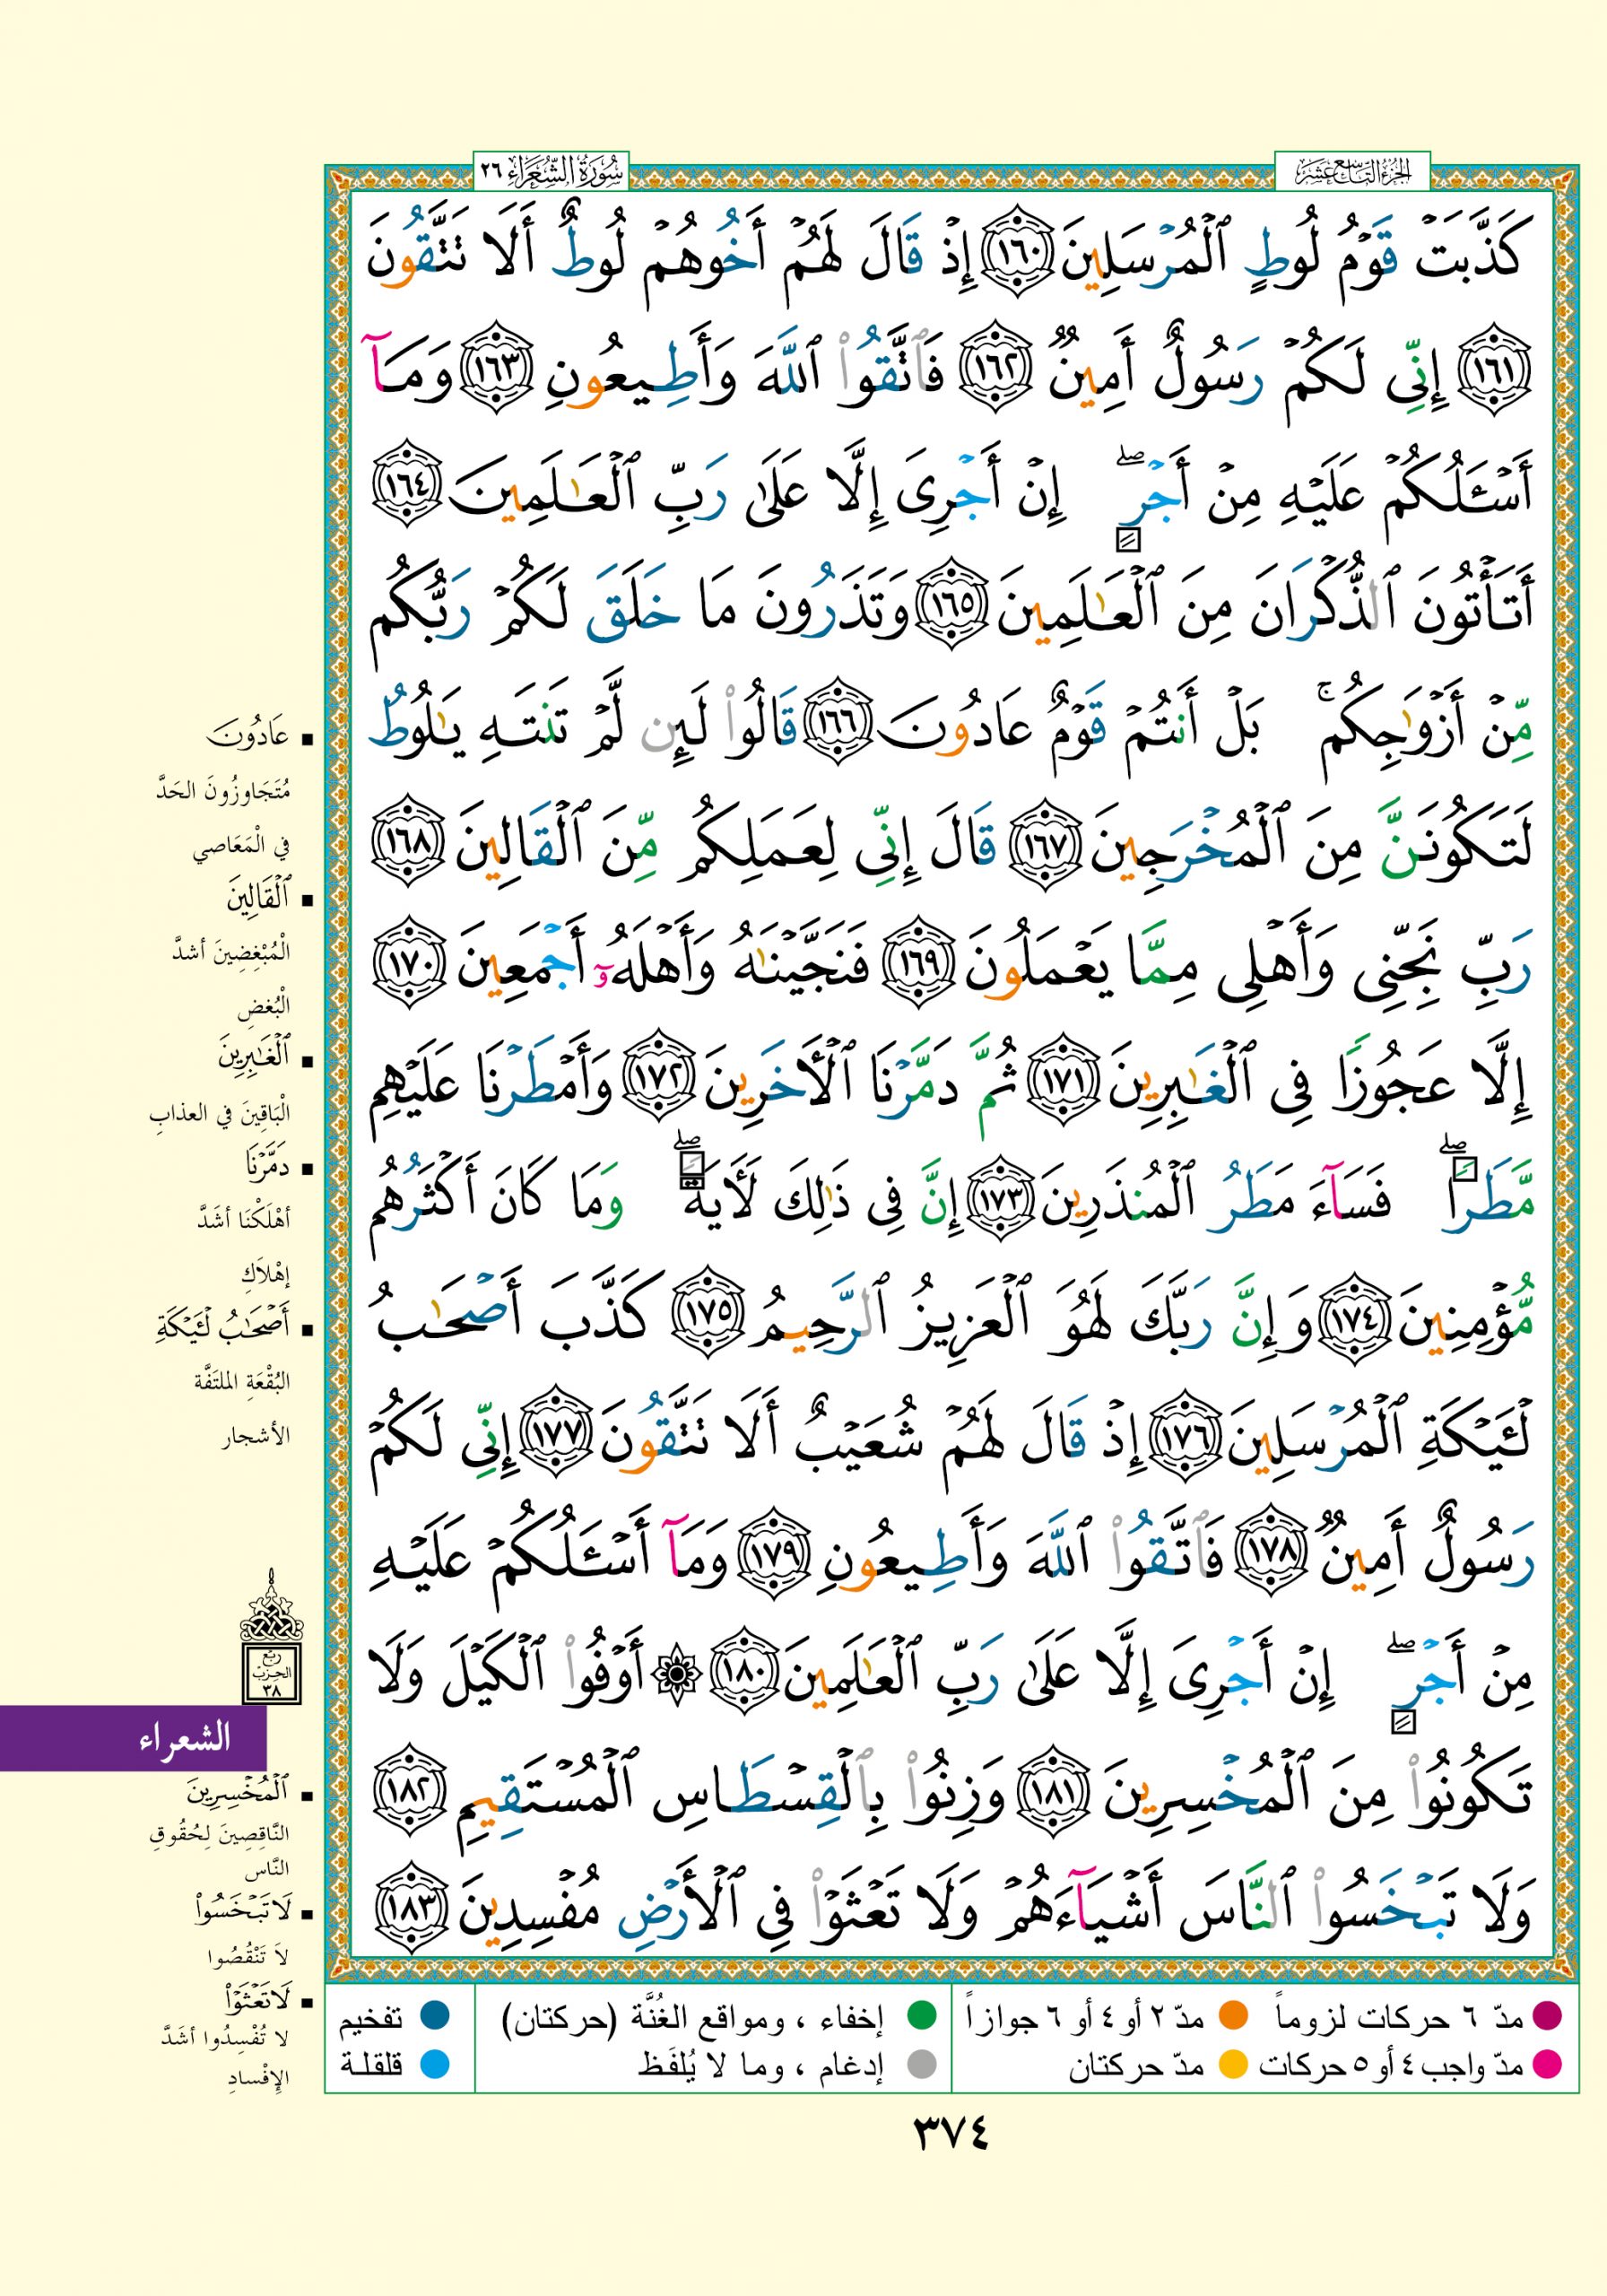 الجزء التاسع عشر
سورة الشعراء ٢٦
كَذَّبَتْ قَوْمُ لُوطٍ ٱلْمُرْسَلِينَ ١٦٠ إِذْ قَالَ لَهُمْ أَخُوهُمْ لُوطٌ أَلَا تَتَّقُونَ
١٦١ إِنِّى لَكُمْ رَسُولٌ أَمِينٌ ١٦٢ فَٱتَّقُوا۟ ٱللَّهَ وَأَطِيعُونِ ١٦٣ وَمَآ
أَسْـَٔلُكُمْ عَلَيْهِ مِنْ أَجْرٍ ۖ إِنْ أَجْرِىَ إِلَّا عَلَىٰ رَبِّ ٱلْعَـٰلَمِينَ ١٦٤
أَتَأْتُونَ ٱلذُّكْرَانَ مِنَ ٱلْعَـٰلَمِينَ ١٦٥ وَتَذَرُونَ مَا خَلَقَ لَكُمْ رَبُّكُم
مِّنْ أَزْوَٰجِكُم ۚ بَلْ أَنتُمْ قَوْمٌ عَادُونَ ١٦٦ قَالُوا۟ لَئِن لَّمْ تَنتَهِ يَـٰلُوطُ
لَتَكُونَنَّ مِنَ ٱلْمُخْرَجِينَ ١٦٧ قَالَ إِنِّى لِعَمَلِكُم مِّنَ ٱلْقَالِينَ ١٦٨
رَبِّ نَجِّنِى وَأَهْلِى مِمَّا يَعْمَلُونَ ١٦٩ فَنَجَّيْنَـٰهُ وَأَهْلَهُۥٓ أَجْمَعِينَ ١٧٠
إِلَّا عَجُوزًا فِى ٱلْغَـٰبِرِينَ ١٧١ ثُمَّ دَمَّرْنَا ٱلْأَخَرِينَ ١٧٢ وَأَمْطَرْنَا عَلَيْهِم
مَّطَرًا ۖ فَسَآءَ مَطَرُ ٱلْمُنذَرِينَ ١٧٣ إِنَّ فِى ذَٰلِكَ لَأَيَةً ۖ وَمَا كَانَ أَكْثَرُهُم
مُّؤْمِنِينَ ١٧٤ وَإِنَّ رَبَّكَ لَهُوَ ٱلْعَزِيزُ ٱلرَّحِيمُ ١٧٥ كَذَّبَ أَصْحَـٰبُ
لْـَٔيْكَةِ ٱلْمُرْسَلِينَ ١٧٦ إِذْ قَالَ لَهُمْ شُعَيْبٌ أَلَا تَتَّقُونَ ١٧٧ إِنِّى لَكُمْ
رَسُولٌ أَمِينٌ ١٧٨ فَٱتَّقُوا۟ ٱللَّهَ وَأَطِيعُونِ ١٧٩ وَمَآ أَسْـَٔلُكُمْ عَلَيْهِ
مِنْ أَجْرٍ ۖ إِنْ أَجْرِىَ إِلَّا عَلَىٰ رَبِّ ٱلْعَـٰلَمِينَ ١٨٠ ۞ أَوْفُوا۟ ٱلْكَيْلَ وَلَا
تَكُونُوا۟ مِنَ ٱلْمُخْسِرِينَ ١٨١ وَزِنُوا۟ بِٱلْقِسْطَاسِ ٱلْمُسْتَقِيمِ ١٨٢
وَلَا تَبْخَسُوا۟ ٱلنَّاسَ أَشْيَآءَهُمْ وَلَا تَعْثَوْا۟ فِى ٱلْأَرْضِ مُفْسِدِينَ ١٨٣
عَادُونَ
مُتَجَاوِزُونَ الحَدَّ
في الْمَعَاصي
ٱلْقَالِينَ
الْمُبْغِضِينَ أشدَّ
الْبُغضِ
ٱلْغَـٰبِرِينَ
الْبَاقِينَ في العذابِ
دَمَّرْنَا
أهْلَكْنَا أشَدَّ
إهْلاَكِ
أَصْحَـٰبُ لْـَٔيْكَةِ
البُقْعَةِ الملتَفَّة
الأشجار
ربع
الحزب
٣٨
الشعراء
ٱلْمُخْسِرِينَ
النَّاقِصِينَ لِحُقُوقِ
النَّاس
لَا تَبْخَسُوا۟
لاَ تَنْقُصُوا
لَا تَعْثَوْا۟
لا تُفْسِدُوا أشَدَّ
الإفْسادِ
مدّ ٦ حركات لزوماً
مدّ ٢ أو ٤ أو ٦ جوازاً
إخفاء ، ومواقع الغُنَّة (حركتان)
تفخيم
مدّ واجب ٤ أو ٥ حركات
مدّ حركتان
إدغام ، وما لا يُلفَظ
قلقلة
٣٧٤